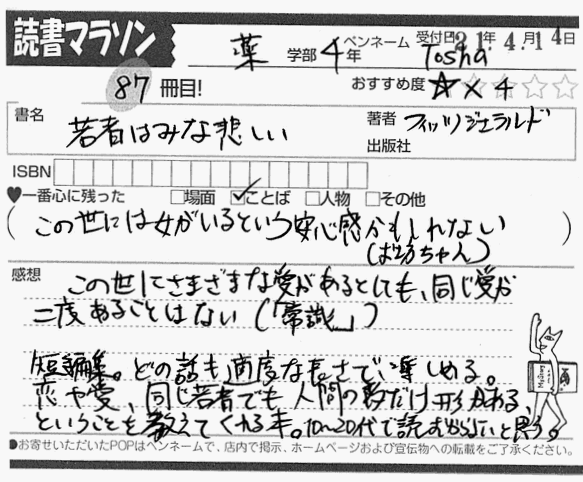 読書マラソン
薬 学部 4年 ペンネーム Tosha 受付日 21年 4月14日
87冊目!
おすすめ度 ★×4 ☆☆☆
書名 若者はみな悲しい
著者 フィッツジェラルド
出版社
ISBN
♥一番心に残った □場面 ☑ことば □人物 □その他
(この世には女がいるという安心感かもしれない)
(ば坊ちゃん)
感想
この世にさまざまな愛があるとしても、同じ愛が
二度あることはない(「常識」)
短編集。どの話も適度な長さで楽しめる。
恋や愛、同じ若者でも人間の数だけ形がある、
ということを教えてくれる本。10〜20代で読むといいと思う。
●お寄せいただいたPOPはペンネームで、店内で掲示、ホームページおよび宣伝物への転載をご了承ください。